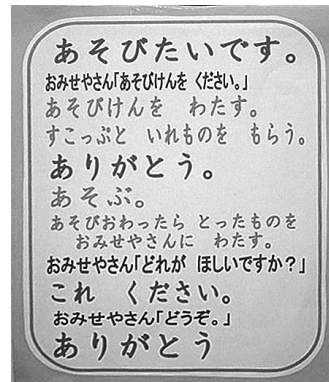 あそびたいです。
おみせやさん「あそびけんを ください。」
あそびけんを　わたす。
すこっぷと　いれものを　もらう。
ありがとう。
あそぶ。
あそびおわったら とったものを
おみせやさんに　わたす。
おみせやさん「どれが ほしいですか？」
これ　ください。
おみせやさん「どうぞ。」
ありがとう